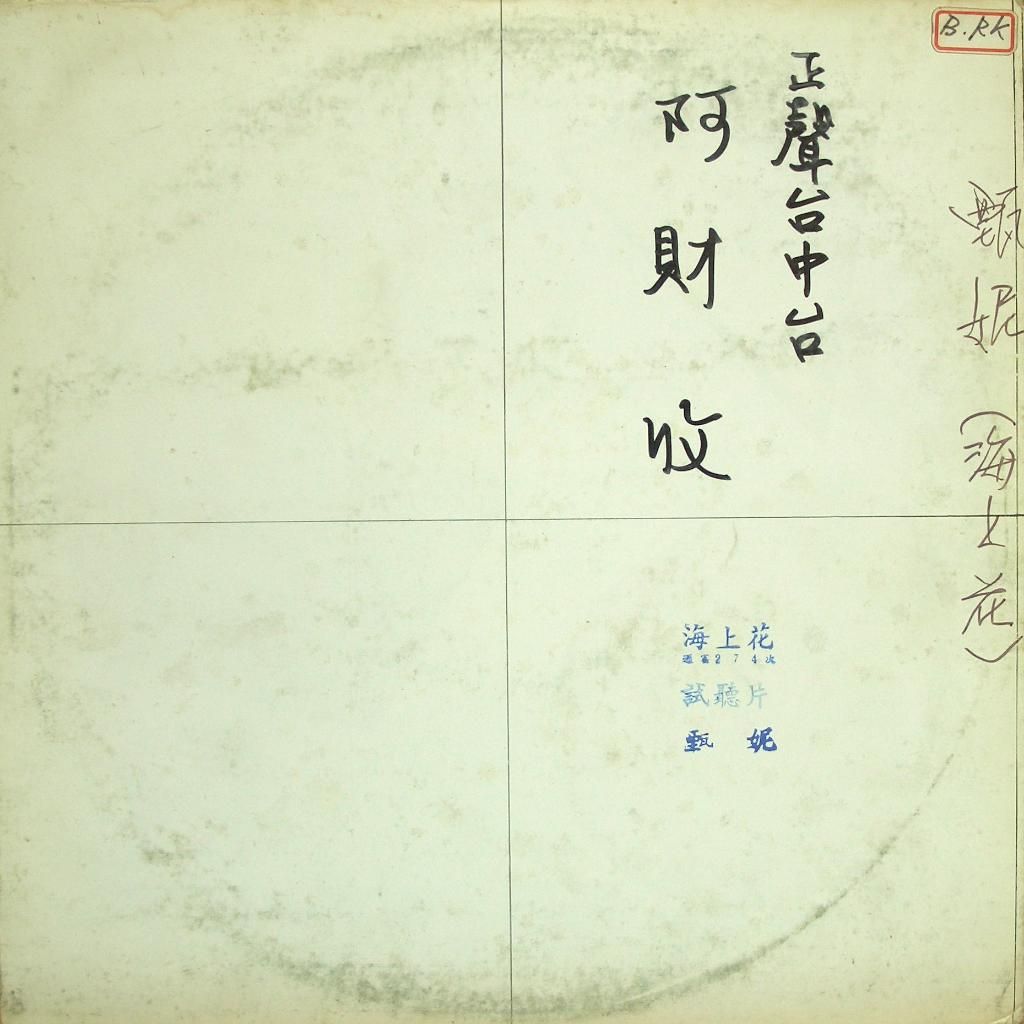 B.RK
甄妮(海上花)
正聲台中台
阿財收
海上花
274次
試聽片
甄妮